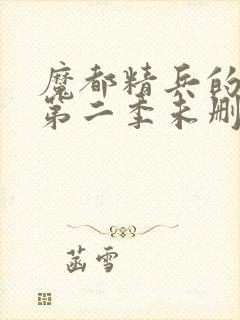 魔都精兵的
第二季未删
菡雪